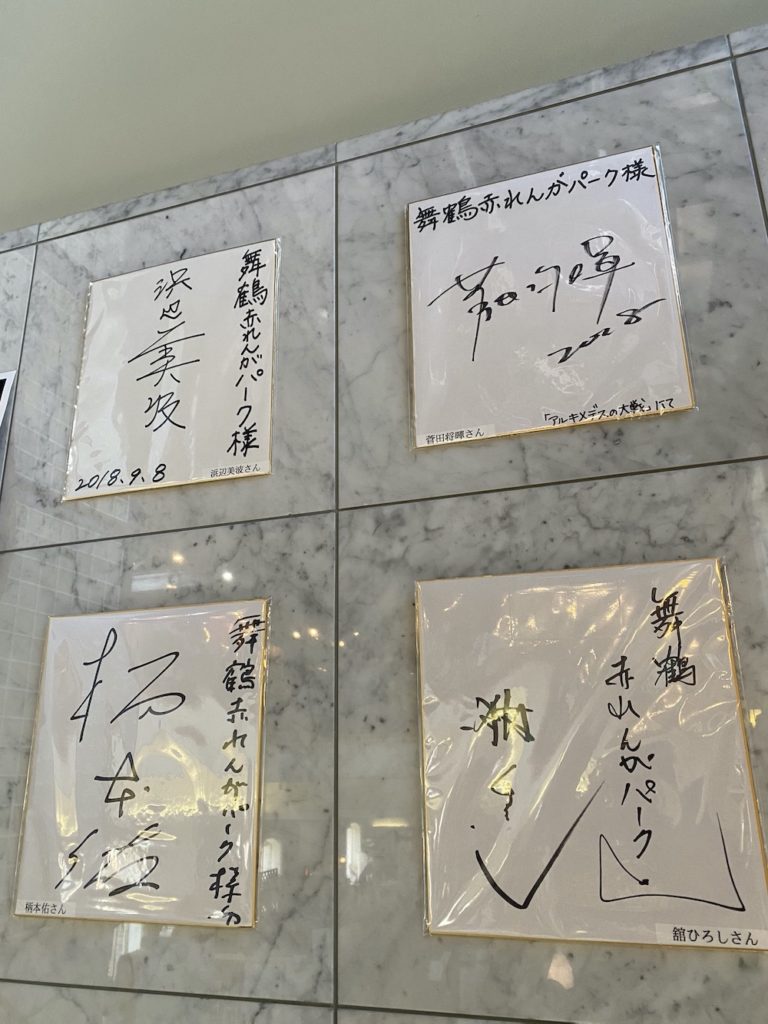 舞鶴赤れんがパーク様
浜辺美波
2018.9.8
浜辺美波さん
舞鶴赤れんがパーク様
菅田将暉
2018
「アルキメデスの大戦」にて
菅田将暉さん
舞鶴赤れんがパーク様
柄本佑
柄本佑さん
舞鶴
赤れんがパーク
舘ひろし
舘ひろしさん